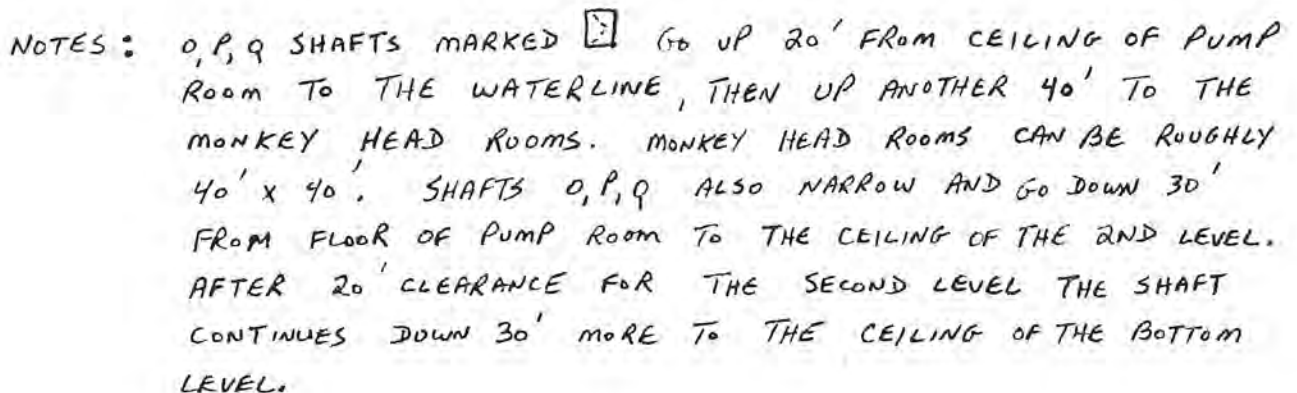 NOTES: O, P, Q SHAFTS MARKED GO UP 20' FROM CEILING OF PUMP
ROOM TO THE WATERLINE, THEN UP ANOTHER 40' TO THE
MONKEY HEAD ROOMS. MONKEY HEAD ROOMS CAN BE ROUGHLY
40' x 40'. SHAFTS O, P, Q ALSO NARROW AND GO DOWN 30'
FROM FLOOR OF PUMP ROOM TO THE CEILING OF THE 2ND LEVEL.
AFTER 20' CLEARANCE FOR THE SECOND LEVEL THE SHAFT
CONTINUES DOWN 30' MORE TO THE CEILING OF THE BOTTOM
LEVEL.